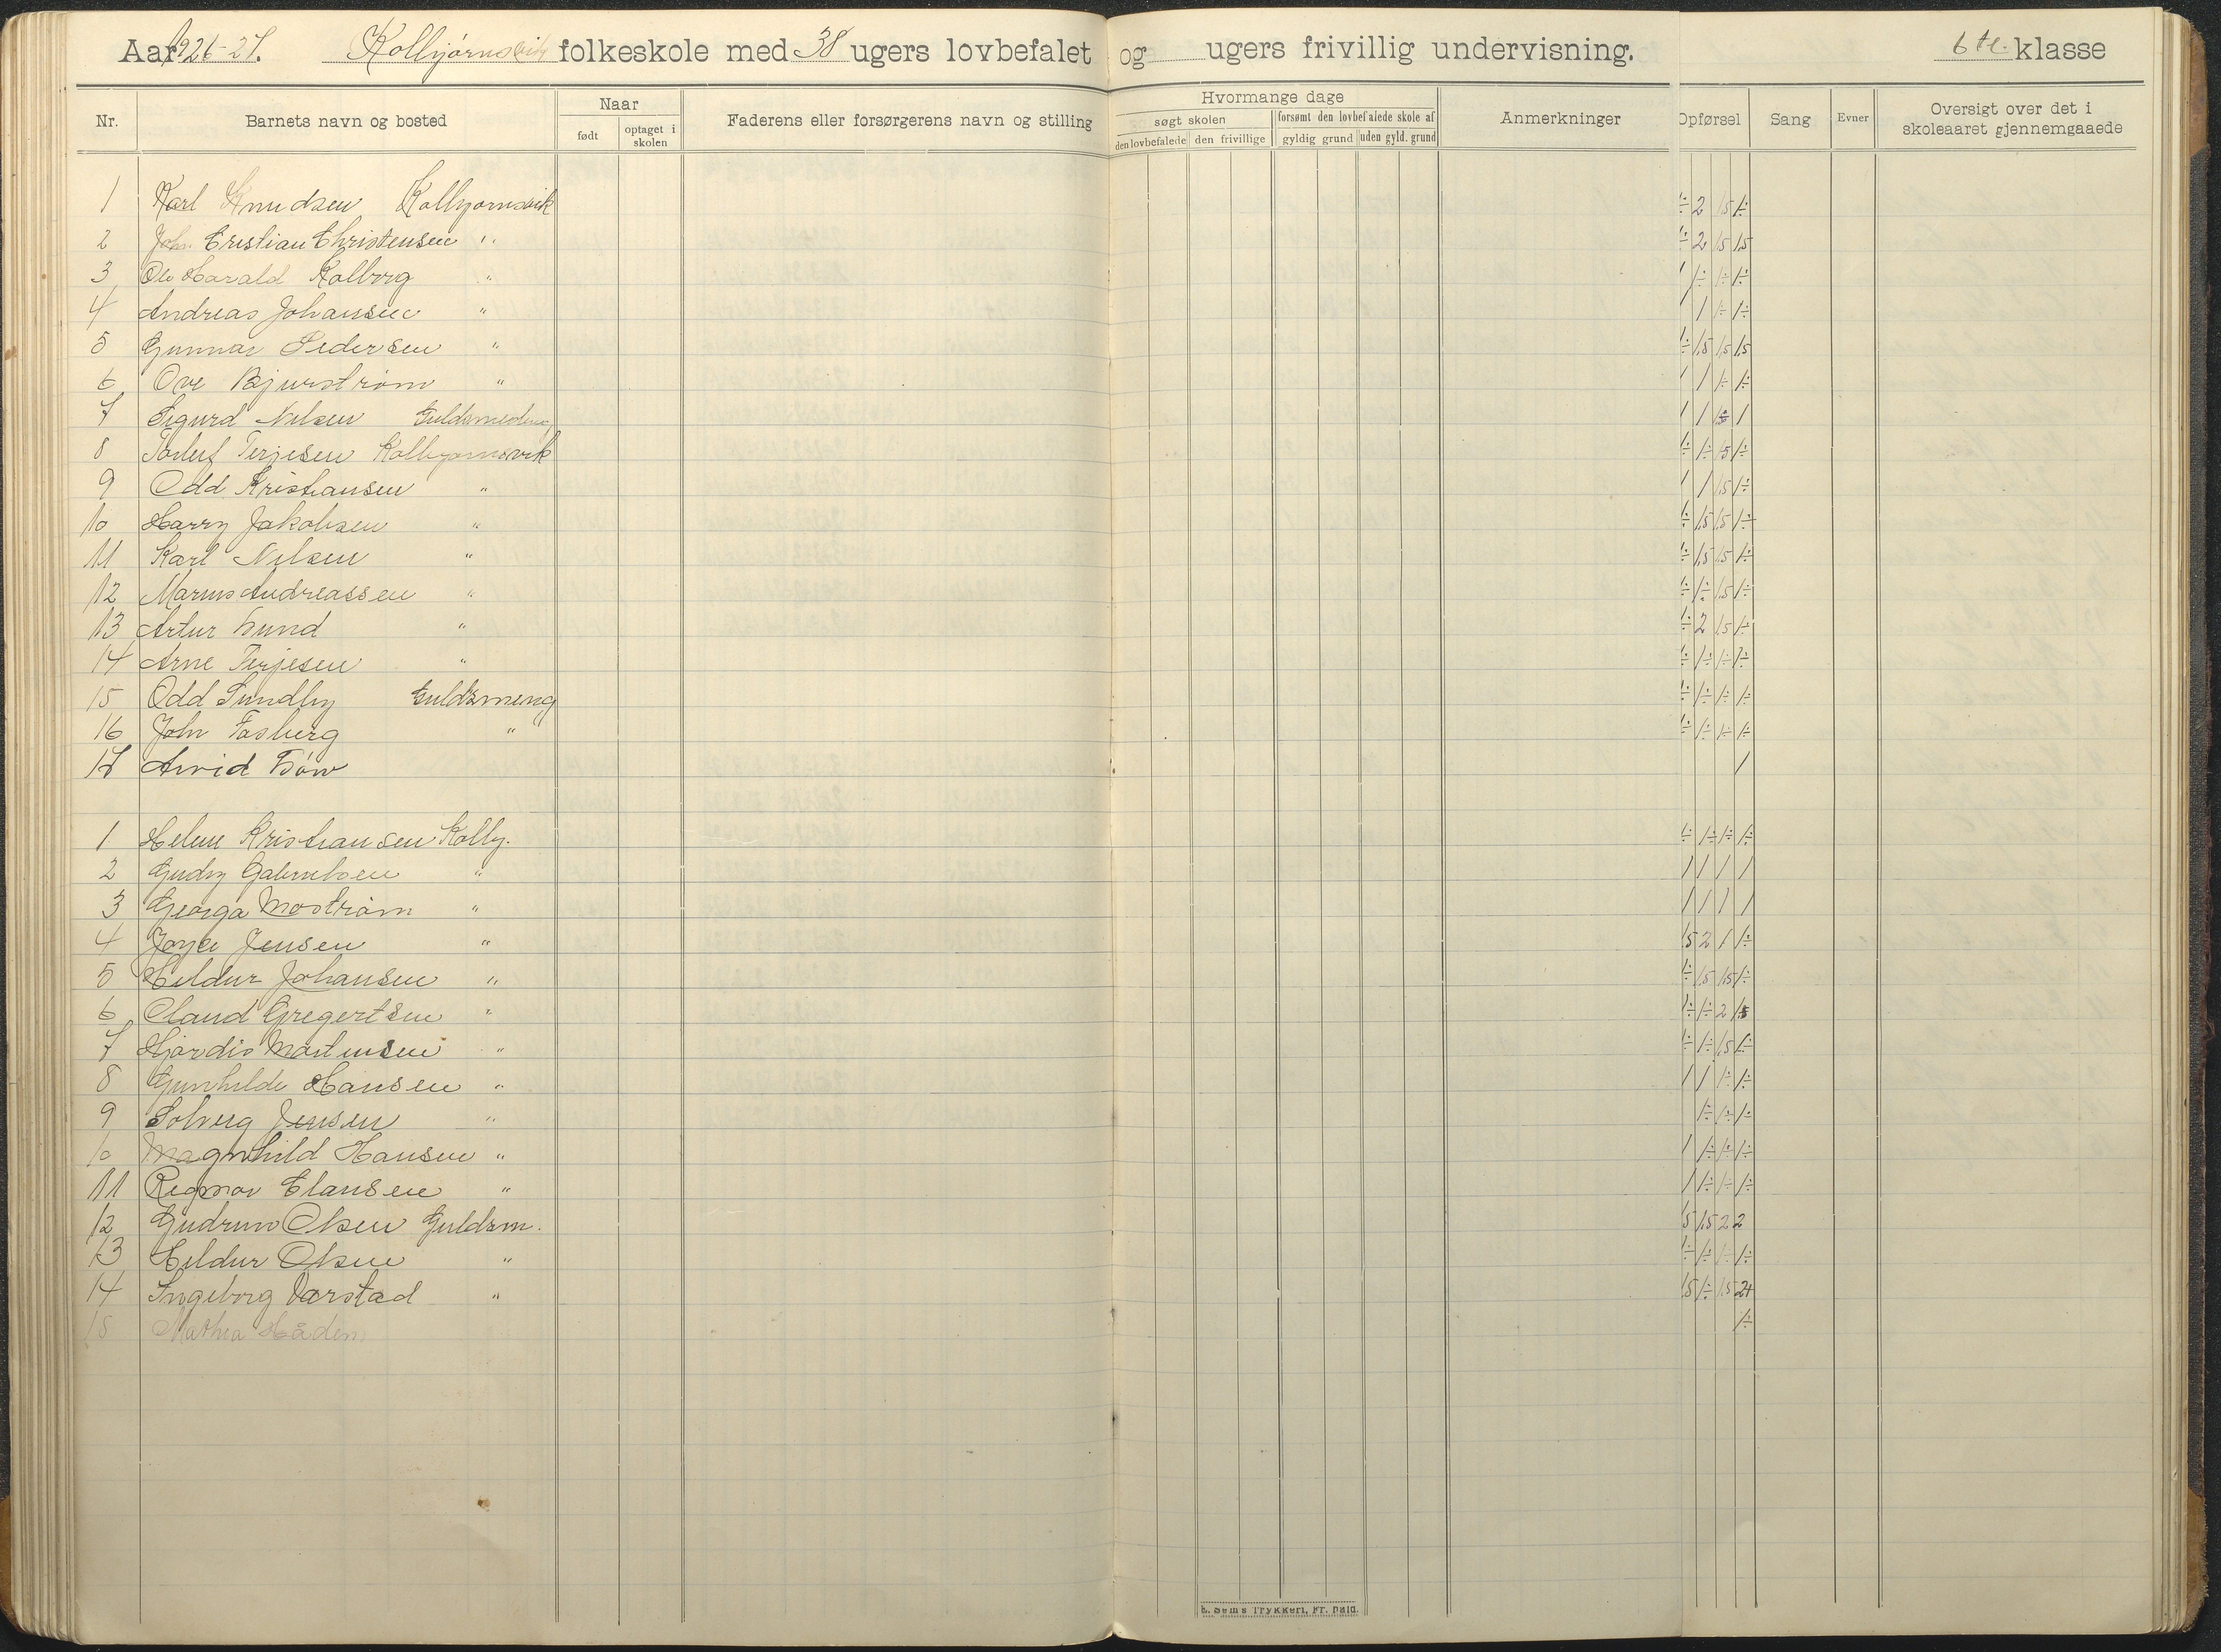 Aar 1926-27. Kolbjørnsvik folkeskole med 38 ugers lovbefalet og ugers frivillig undervisning. 6te. klasse
Nr. Barnets navn og bosted Naar Faderens eller forsørgerens navn og stilling Hvormange dage Anmerkninger Opførsel Sang Evner Oversigt over det i skoleaaret gjennemgaaede
født optaget i skolen søgt skolen forsømt den lovbefalede skole af
den lovbefalede den frivillige gyldig grund uden gyld. grund
1 Karl Knudsen Kolbjørnsvik 1÷ 2 1,5 1÷
2 Joh. Cristian Christensen " 1÷ 2 1,5 1,5
3 Ole Harald Kalborg " 1 1÷ 1÷ 1÷
4 Andreas Johansen " 1 1 1÷ 1÷
5 Gunnar Pedersen " 1÷ 1,5 1,5 1,5
6 Ove Bjurstrøm " 1 1 1÷ 1÷
7 Sigurd Nilsen Guldsmedeng 1 1 1
8 Torleif Terjesen Kolbjørnsvik 1÷ 1÷ 1,5 1÷
9 Odd Kristiansen " 1 1 1,5 1÷
10 Harry Jakobsen " 1÷ 1,5 1,5 1÷
11 Karl Nilsen " 1÷ 1,5 1,5 1÷
12 Marius Andreassen " 1÷ 1÷ 1,5 1÷
13 Artur Lund " 1÷ 2 1,5 1÷
14 Arne Terjesen " 1÷ 1÷ 1÷ 1÷
15 Odd Sundby Guldsmeng 1÷ 1÷ 1÷ 1÷
16 John Fosberg " 1÷ 1÷ 1÷ 1÷
17 Arvid 1
1 Helene Kristiansen Kolbj. 1÷ 1÷ 1÷ 1÷
2 Gudny Gabrielsen " 1 1 1 1
3 Georga Mostrøm " 1 1 1 1
4 Joyce Jensen " 1,5 2 1 1÷
5 Hildur Johansen " 1÷ 1,5 1,5 1÷
6 Olaud Gregertsen " 1÷ 1÷ 2 1,5
7 Hjørdis Martinsen " 1÷ 1÷ 1,5 1÷
8 Gunhilde Hansen " 1 1 1÷ 1÷
9 Solveig Jensen " 1÷ 1÷ 1÷
10 Magnhild Hansen " 1 1÷ 1÷ 1÷
11 Ragmor Clausen " 1 1÷ 1÷ 1÷
12 Gudrun Olsen Guldsm. 1,5 1,5 2 2
13 Hildur Olsen " 1÷ 1÷ 1÷ 1÷
14 Ingeborg Varstad " 1,5 1÷ 1,5 2+
15 Mathea Håden 1÷
E. Sems Trykkeri, Fr. hald.